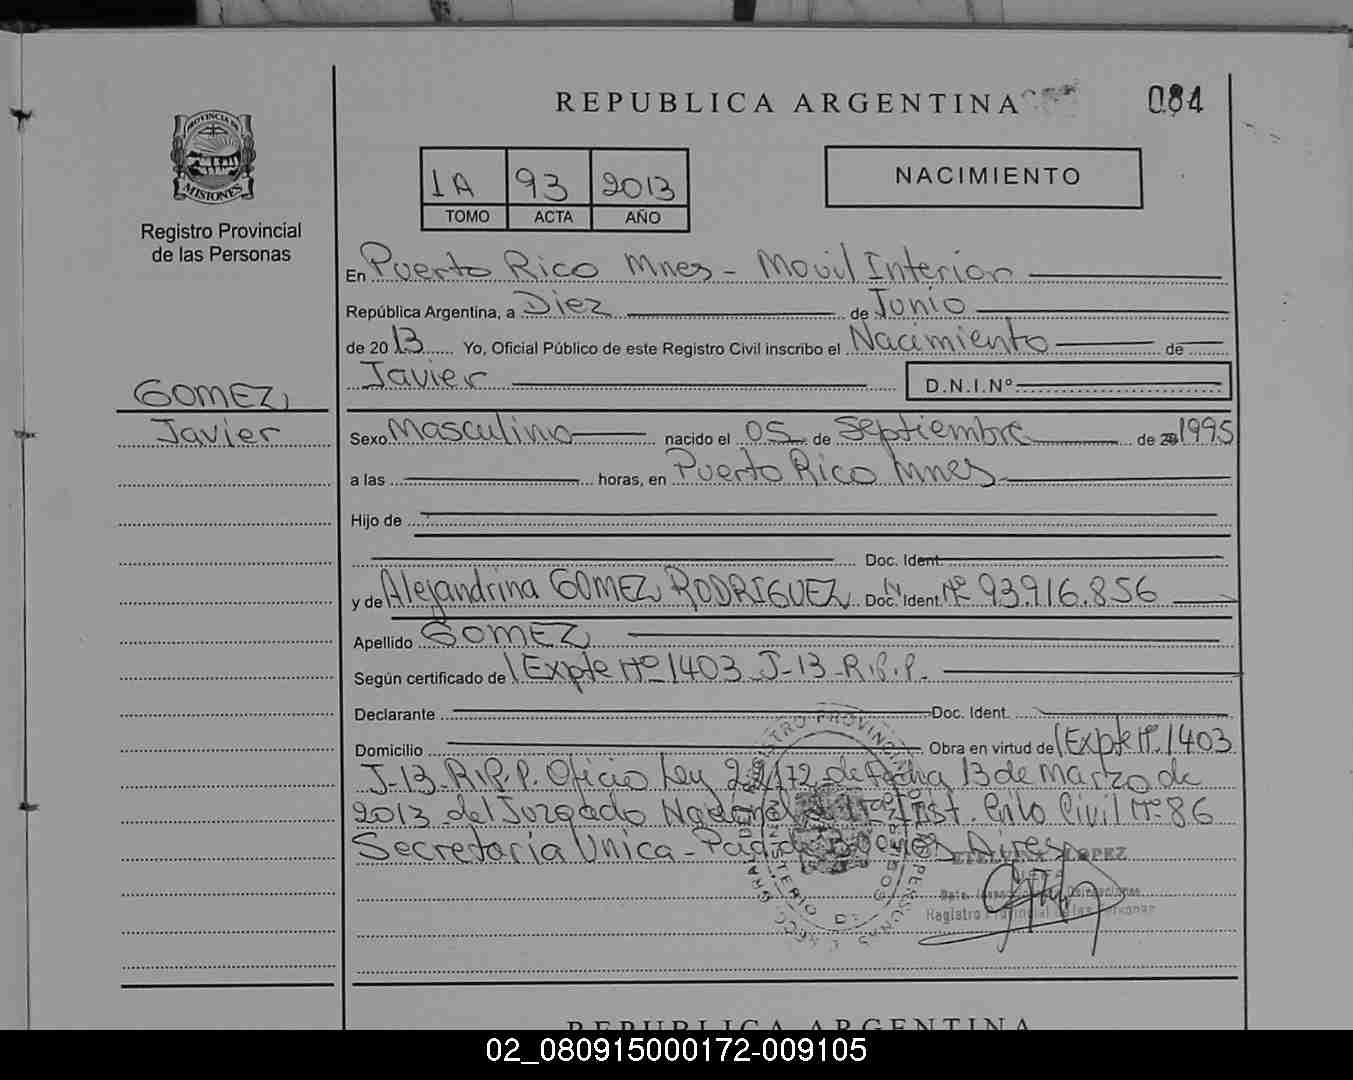 REPUBLICA ARGENTINA
084
PROVINCIA DE
MISIONES
Registro Provincial
de las Personas
1A 93 2013
TOMO ACTA AÑO
NACIMIENTO
En Puerto Rico Mnes - Movil Interior
República Argentina, a Diez de Junio
de 2013 Yo, Oficial Público de este Registro Civil inscribo el Nacimiento de
Javier D.N.I.Nº
GOMEZ,
Javier
Sexo Masculino nacido el 05 de Septiembre de 1995
a las horas, en Puerto Rico Mnes
Hijo de
Doc. Ident.
y de Alejandrina GOMEZ RODRIGUEZ Doc. Ident. Nº 93.916.856
Apellido GOMEZ
Según certificado de Expte Nº 1403 J-13-R.P.P.
Declarante Doc. Ident.
Domicilio Obra en virtud de Expte Nº 1403
J-13-R.P.P. Oficio Ley 22172 de fecha 13 de Marzo de
2013 del Juzgado Nacional de 1º Inst. en lo Civil Nº 86
Secretaría Unica - Buenos Aires
LOPEZ
Registro Provincial de las Personas
REPUBLICA ARGENTINA
02_080915000172-009105